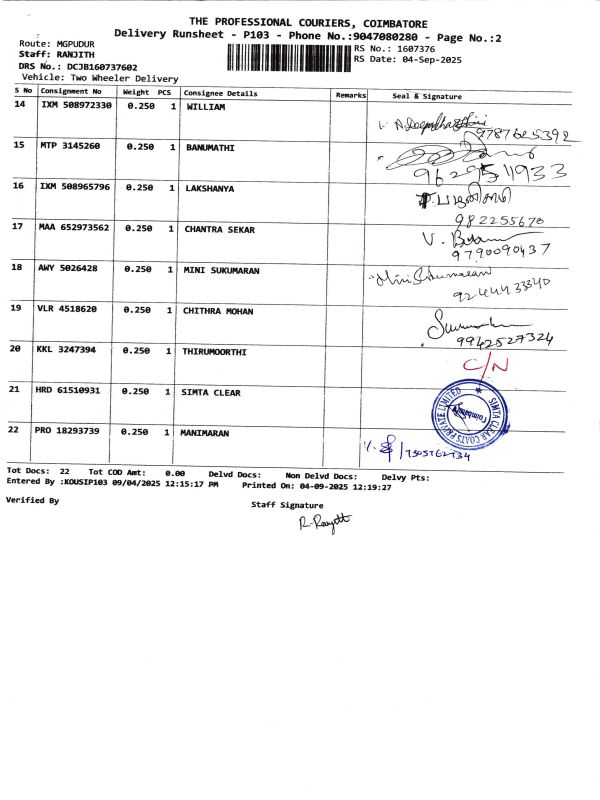 THE PROFESSIONAL COURIERS, COIMBATORE
Delivery Runsheet - P103 - Phone No.:9047080280 - Page No.:2
Route: MGPUDUR
Staff: RANJITH
DRS No.: DCJB160737602
Vehicle: Two Wheeler Delivery
RS No.: 1607376
RS Date: 04-Sep-2025
S No Consignment No Weight PCS Consignee Details Remarks Seal & Signature
14 IXM 508972330 0.250 1 WILLIAM
9787625392
15 MTP 3145260 0.250 1 BANUMATHI
9629511933
16 IXM 508965796 0.250 1 LAKSHANYA
982255670
17 MAA 652973562 0.250 1 CHANTRA SEKAR
V.
9790090437
18 AWY 5026428 0.250 1 MINI SUKUMARAN
Mini Sukumaran
9244433340
19 VLR 4518620 0.250 1 CHITHRA MOHAN
9942527324
20 KKL 3247394 0.250 1 THIRUMOORTHI C/N
21 HRD 61510931 0.250 1 SIMTA CLEAR
SIMTA CLEAR COATS PRIVATE LIMITED
Coimbatore
22 PRO 18293739 0.250 1 MANIMARAN
7305762734
Tot Docs: 22 Tot COD Amt: 0.00 Delvd Docs: Non Delvd Docs: Delvy Pts:
Entered By :KOUSIP103 09/04/2025 12:15:17 PM Printed On: 04-09-2025 12:19:27
Verified By
Staff Signature